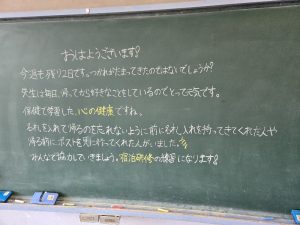 おはようございます!
今週も残り2日です。つかれがたまってきたのではないでしょうか?
先生は毎日、帰ってから好きなことをしているのでとっても元気です。
保健で学習した、心の健康ですね。
名札を入れて帰るのを忘れないように前に名札入れを持ってきてくれた人や
帰る前に、ポストを見に行ってくれた人がいました。
みんなで協力していきましょう。宿泊研修の練習になります!